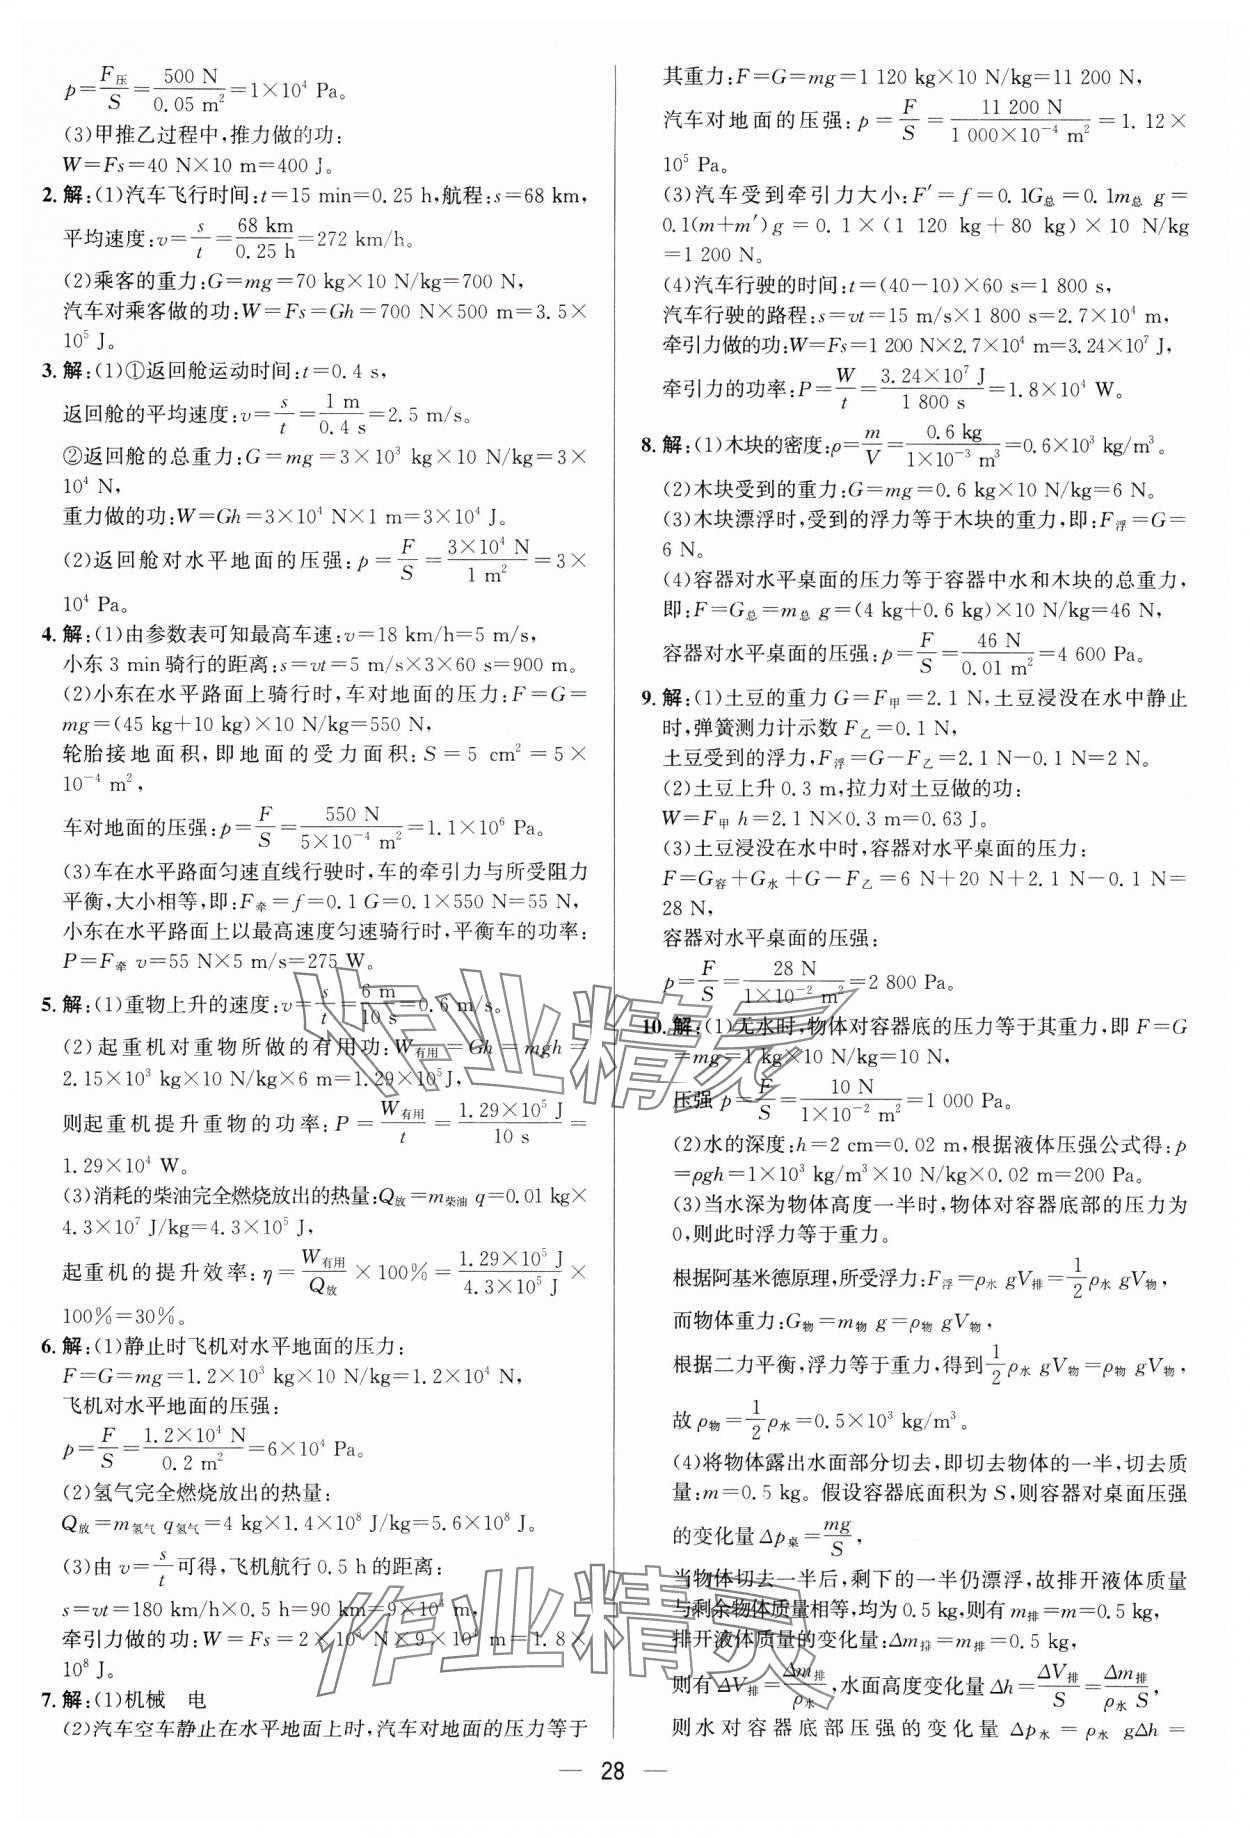 p=F压/S=500 N/0.05 m²=1×10⁴ Pa。
(3)甲推乙过程中,推力做的功:
W=Fs=40 N×10 m=400 J。
2. 解:(1)汽车飞行时间:t=15 min=0.25 h,航程:s=68 km,
平均速度:v=s/t=68 km/0.25 h=272 km/h。
(2)乘客的重力:G=mg=70 kg×10 N/kg=700 N,
汽车对乘客做的功:W=Fs=Gh=700 N×500 m=3.5×
10⁵ J。
3. 解:(1)①返回舱运动时间:t=0.4 s,
返回舱的平均速度:v=s/t=1 m/0.4 s=2.5 m/s。
②返回舱的总重力:G=mg=3×10³ kg×10 N/kg=3×
10⁴ N,
重力做的功:W=Gh=3×10⁴ N×1 m=3×10⁴ J。
(2)返回舱对水平地面的压强:p=F/S=3×10⁴ N/1 m²=3×
10⁴ Pa。
4. 解:(1)由参数表可知最高车速:v=18 km/h=5 m/s,
小东3 min骑行的距离:s=vt=5 m/s×3×60 s=900 m。
(2)小东在水平路面上骑行时,车对地面的压力:F=G=
mg=(45 kg+10 kg)×10 N/kg=550 N,
轮胎接地面积,即地面的受力面积:S=5 cm²=5×
10⁻⁴ m²,
车对地面的压强:p=F/S=550 N/5×10⁻⁴ m²=1.1×10⁶ Pa。
(3)车在水平路面匀速直线行驶时,车的牵引力与所受阻力
平衡,大小相等,即:F牵=f=0.1 G=0.1×550 N=55 N,
小东在水平路面上以最高速度匀速骑行时,平衡车的功率:
P=F牵 v=55 N×5 m/s=275 W。
5. 解:(1)重物上升的速度:v=s/t=6 m/10 s=0.6 m/s。
(2)起重机对重物所做的有用功:W有用=Gh=mgh=
2.15×10³ kg×10 N/kg×6 m=1.29×10⁵J,
则起重机提升重物的功率:P=W有用/t=1.29×10⁵ J/10 s=
1.29×10⁴ W。
(3)消耗的柴油完全燃烧放出的热量:Q放=m柴油 q=0.01 kg×
4.3×10⁷ J/kg=4.3×10⁵ J,
起重机的提升效率:η=W有用/Q放×100%=1.29×10⁵ J/4.3×10⁵ J×
100%=30%。
6. 解:(1)静止时飞机对水平地面的压力:
F=G=mg=1.2×10³ kg×10 N/kg=1.2×10⁴ N,
飞机对水平地面的压强:
p=F/S=1.2×10⁴ N/0.2 m²=6×10⁴ Pa。
(2)氢气完全燃烧放出的热量:
Q放=m氢气 q氢气=4 kg×1.4×10⁸ J/kg=5.6×10⁸ J。
(3)由 v=s/t可得,飞机航行0.5 h的距离:
s=vt=180 km/h×0.5 h=90 km=9×10⁴ m,
牵引力做的功:W=Fs=2×10³ N×9×10⁴ m=1.8×
10⁸ J。
7. 解:(1)机械 电
(2)汽车空车静止在水平地面上时,汽车对地面的压力等于
其重力:F=G=mg=1 120 kg×10 N/kg=11 200 N,
汽车对地面的压强:p=F/S=11 200 N/1 000×10⁻⁴ m²=1.12×
10⁵ Pa。
(3)汽车受到牵引力大小:F′=f=0.1G总=0.1m总 g=
0.1(m+m′)g=0.1×(1 120 kg+80 kg)×10 N/kg
=1 200 N。
(4)汽车行驶的时间:t=(40-10)×60 s=1 800 s,
汽车行驶的路程:s=vt=15 m/s×1 800 s=2.7×10⁴ m,
牵引力做的功:W=Fs=1 200 N×2.7×10⁴ m=3.24×10⁷ J,
牵引力的功率:P=W/t=3.24×10⁷ J/1 800 s=1.8×10⁴ W。
8. 解:(1)木块的密度:ρ=m/V=0.6 kg/1×10⁻³ m³=0.6×10³ kg/m³。
(2)木块受到的重力:G=mg=0.6 kg×10 N/kg=6 N。
(3)木块漂浮时,受到的浮力等于木块的重力,即:F浮=G=
6 N。
(4)容器对水平桌面的压力等于容器中水和木块的总重力,
即:F=G总=m总 g=(4 kg+0.6 kg)×10 N/kg=46 N,
容器对水平桌面的压强:p=F/S=46 N/0.01 m²=4 600 Pa。
9. 解:(1)土豆的重力 G=F甲=2.1 N,土豆浸没在水中静止
时,弹簧测力计示数F乙=0.1 N,
土豆受到的浮力,F浮=G-F乙=2.1 N-0.1 N=2 N。
(2)土豆上升0.3 m,拉力对土豆做的功:
W=F甲 h=2.1 N×0.3 m=0.63 J。
(3)土豆浸没在水中时,容器对水平桌面的压力:
F=G容+G水+G-F乙=6 N+20 N+2.1 N-0.1 N=
28 N,
容器对水平桌面的压强:
p=F/S=28 N/1×10⁻² m²=2 800 Pa。
10. 解:(1)无水时,物体对容器底的压力等于其重力,即 F=G
=mg=1 kg×10 N/kg=10 N,
压强 p=F/S=10 N/1×10⁻² m²=1 000 Pa。
(2)水的深度:h=2 cm=0.02 m,根据液体压强公式得:p
=ρgh=1×10³ kg/m³×10 N/kg×0.02 m=200 Pa。
(3)当水深为物体高度一半时,物体对容器底部的压力为
0,则此时浮力等于重力。
根据阿基米德原理,所受浮力:F浮=ρ水 gV排=1/2ρ水 gV物,
而物体重力:G物=m物 g=ρ物 gV物,
根据二力平衡,浮力等于重力,得到1/2ρ水 gV物=ρ物 gV物,
故 ρ物=1/2ρ水=0.5×10³ kg/m³。
(4)将物体露出水面部分切去,即切去物体的一半,切去质
量:m=0.5 kg。假设容器底面积为S,则容器对桌面压强
的变化量Δp桌=mg/S,
当物体切去一半后,剩下的一半仍漂浮,故排开液体质量
与剩余物体质量相等,均为0.5 kg,则有 m排=m=0.5 kg,
排开液体质量的变化量:Δm排=m排=0.5 kg,
则有ΔV排=Δm排/ρ水,水面高度变化量Δh=ΔV排/S=Δm排/ρ水 S,
则水对容器底部压强的变化量 Δp水=ρ水 gΔh=
作业精灵
作业精灵
28